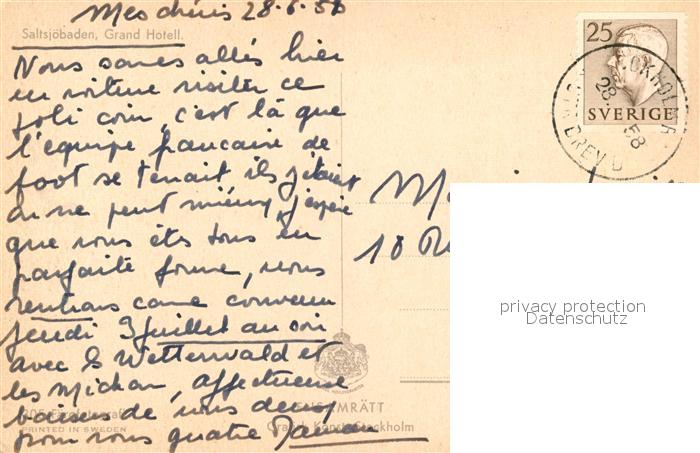 Mes chéris 28.6.58
Saltsjöbaden, Grand Hotell.
Nous somes allés hier
en voiture visiter ce
joli coin, c'est là que
l'équipe francaise de
foot se tenait ils y était
on ne peut mieux, j'espère
que vous êtes tous en
parfaite forme, nous
rentrons come convenu
jeudi 3 juillet au soir
avec Wetterwald et
les affectueux
baisers de nous deux
pour vous quatre Maman
PRINTED IN SWEDEN
ENSAMRÄTT
Grafisk Konst, Stockholm
25
SVERIGE
STOCKHOLM
28. 58
BREV
M
18 R
privacy protection
Datenschutz